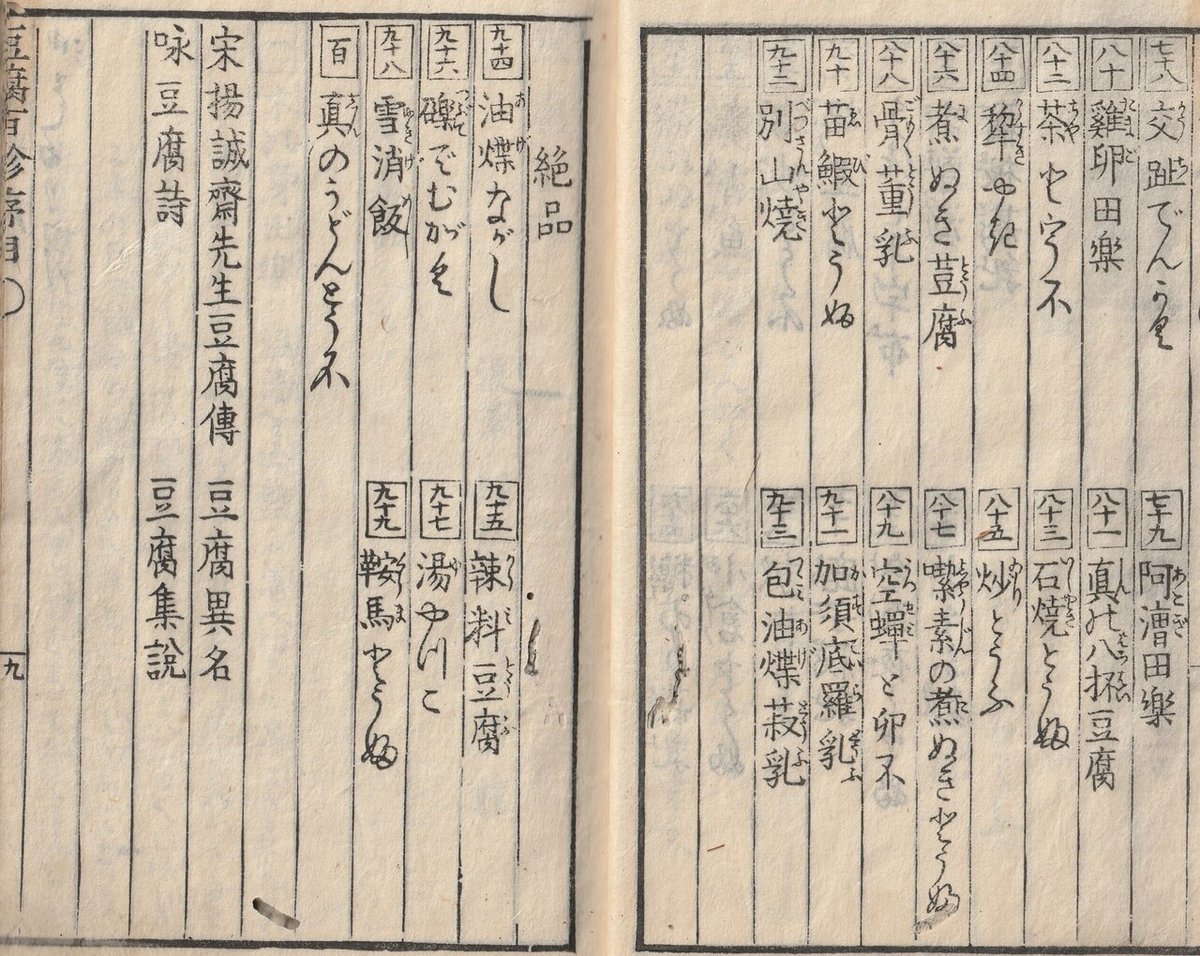 七十八 交趾でんがく
七十九 阿漕田樂
八十 雞卵田樂
八十一 真の八杯豆腐
八十二 茶とうふ
八十三 石焼とうふ
八十四 犂やき
八十五 炒とうふ
八十六 煮ぬき荳腐
八十七 素の煮ぬきとうふ
八十八 骨董乳
八十九 空蟬とうふ
九十 苗鰕とうふ
九十一 加須底羅乳
九十二 別山焼
九十三 包油煠菽乳
絶品
九十四 油煠ながし
九十五 辣料豆腐
九十六 礫でむがく
九十七 湯やつこ
九十八 雪消飯
九十九 鞍馬とうふ
百 真のうどんとうふ
宋揚誠齋先生豆腐傳 豆腐異名
咏豆腐詩 豆腐集說
豆腐百珍序目 九